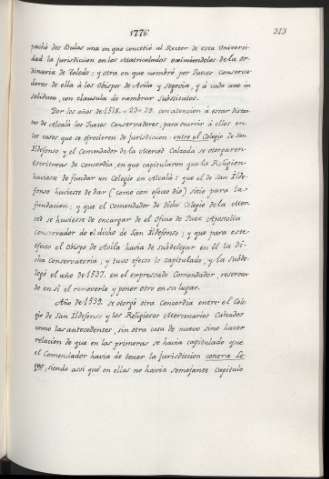 1776
313
pachò dos Bulas una en que concedió al Rector de esta Universi-
dad la jurisdiccion en los Matriculados eximiendoles de la or-
dinaria de Toledo; y otra en que nombró por Jueces Conserva-
dores de ella à los Obispos de Avila y Segovia, y à cada uno in
solidum, con clausula de nombrar Substitutos.
Por los años de 1518. = 23 = 29. con atencion à estar distan-
te de Alcalá los Jueces Conservadores, para ocurrir à ellos en
los casos que se ofrecieren de jurisdiccion entre el Colegio de San
Ildefonso y el Comendador de la Merced Calzada se otorgaron
Escrituras de Concordia, en que capitularon que la Religion
huviese de fundar un Colegio en Alcalá: que el de San Ilde-
fonso huviese de dar (como con efecto dio) sitio para la
fundacion; y que el Comendador de dicho Colegio de la Mer-
ced se huviese de encargar de el oficio de Juez Apostolico
conservador de el dicho de San Ildefonso; y que para este
efecto el Obispo de Avila havia de subdelegar en él la di-
cha Conservatoria; y tuvo efecto lo capitulado, y la subde-
legó el año de 1527. en el expresado Comendador, reservan-
do en si el removerle y poner otro en su lugar.
Año de 1539. se otorgó otra Concordia entre el Cole-
gio de San Ildefonso y los Religiosos Mercenarios Calzados
como las antecedentes, sin otra cosa de nuevo sino hacer
relacion de que en las primeras se havia capitulado que
el Comendador havia de tener la jurisdiccion contra Le-
gos, siendo assi que en ellas no havia semejante Capitulo